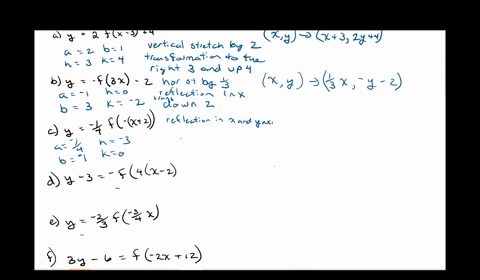 a) y = 2 f(x-3)+4 (x,y) → (x+3, 2y+4)
a = 2 b = 1 vertical stretch by 2
h = 3 k = 4 transformation to the
right 3 and up 4
b) y = -f(3x) - 2 hor st by 1/3 (x,y) → (1/3 x, -y - 2)
a = -1 h = 0 reflection in x
b = 3 k = -2 down 2
c) y = -1/4 f(-(x+2)) reflection in x and y
a = -1/4 h = -3
b = -1 k = 0
d) y - 3 = -f(4(x-2)
e) y = -2/3 f(-3/4 x)
f) 3y - 6 = f(-2x + 12)